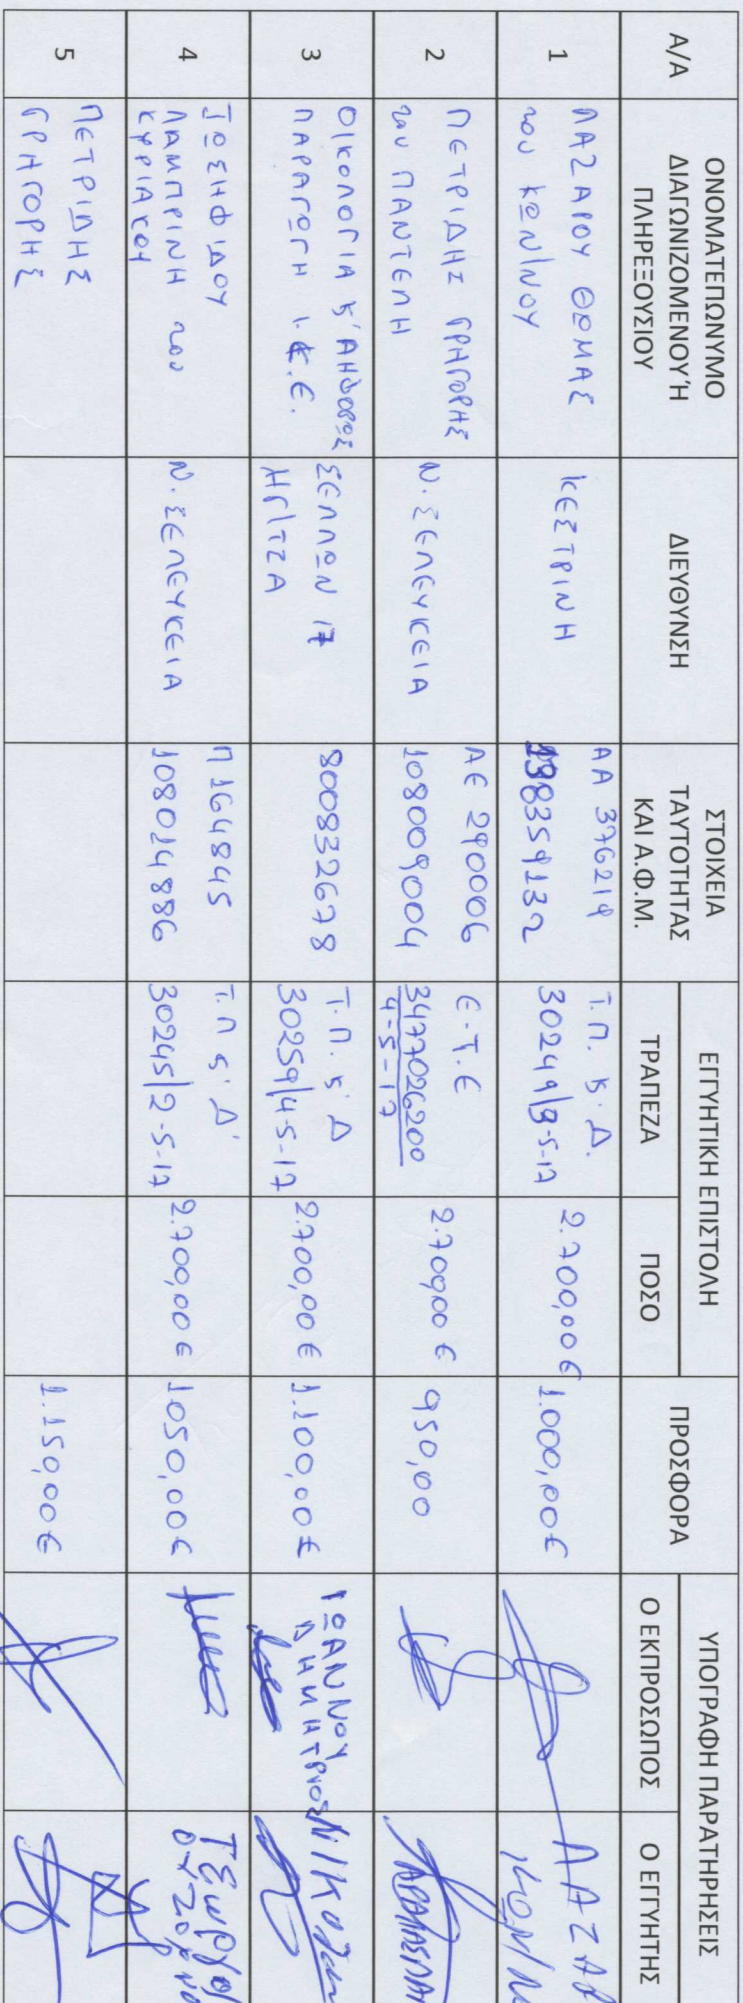 Α/Α
ΟΝΟΜΑΤΕΠΩΝΥΜΟ
ΔΙΑΓΩΝΙΖΟΜΕΝΟΥ Ή
ΠΛΗΡΕΞΟΥΣΙΟΥ
ΔΙΕΥΘΥΝΣΗ
ΣΤΟΙΧΕΙΑ
ΤΑΥΤΟΤΗΤΑΣ
ΚΑΙ Α.Φ.Μ.
ΕΓΓΥΗΤΙΚΗ ΕΠΙΣΤΟΛΗ
ΤΡΑΠΕΖΑ
ΠΟΣΟ
ΠΡΟΣΦΟΡΑ
ΥΠΟΓΡΑΦΗ ΠΑΡΑΤΗΡΗΣΕΙΣ
Ο ΕΚΠΡΟΣΩΠΟΣ
Ο ΕΓΓΥΗΤΗΣ
1
ΛΑΖΑΡΟΥ ΘΩΜΑΣ
του ΚΩΝ/ΝΟΥ
ΚΕΣΤΡΙΝΗ
ΑΑ 376219
138359132
Τ.Π. & Δ.
30249/3-5-17
2.700,00€
1.000,00€
2
ΠΕΤΡΙΔΗΣ ΓΡΗΓΟΡΗΣ
του ΠΑΝΤΕΛΗ
Ν. ΣΕΛΕΥΚΕΙΑ
ΑΕ 290006
108009004
Ε.Τ.Ε
3477026200
4-5-17
2.700,00 €
950,00
3
ΟΙΚΟΛΟΓΙΑ & ΑΗΦΟΡΟΣ
ΠΑΡΑΓΩΓΗ Ι.Κ.Ε.
ΣΕΛΛΩΝ 17
ΗΓ/ΤΣΑ
800832678
Τ.Π. & Δ
30259/4-5-17
2.700,00€
1.100,00€
ΙΩΑΝΝΟΥ
ΔΗΜΗΤΡΙΟΣ
4
ΙΩΣΗΦΙΔΟΥ
ΛΑΜΠΡΙΝΗ του
ΚΥΡΙΑΚΟΥ
Ν. ΣΕΛΕΥΚΕΙΑ
Π 164845
108014886
Τ.Π & Δ
30245/2-5-17
2.700,00€
1050,00€
5
ΠΕΤΡΙΔΗΣ
ΓΡΗΓΟΡΗΣ
1.150,00€